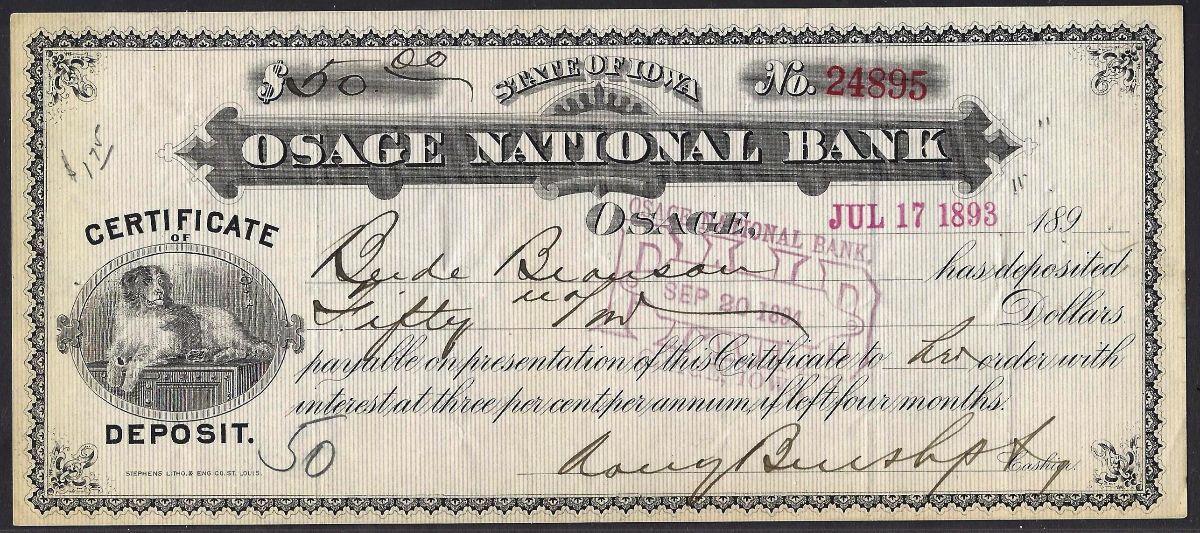 $50.00
STATE OF IOWA
No. 24895
$1.75
OSAGE NATIONAL BANK
OSAGE, JUL 17 1893 189
CERTIFICATE
OF
DEPOSIT.
Bronson has deposited
Fifty no/00 Dollars
payable on presentation of this Certificate to her order with
interest at three per cent per annum, if left four months.
50
Cashier.
STEPHENS LITHO. & ENG CO. ST. LOUIS.
OSAGE NATIONAL BANK.
PAID
SEP 20 1894